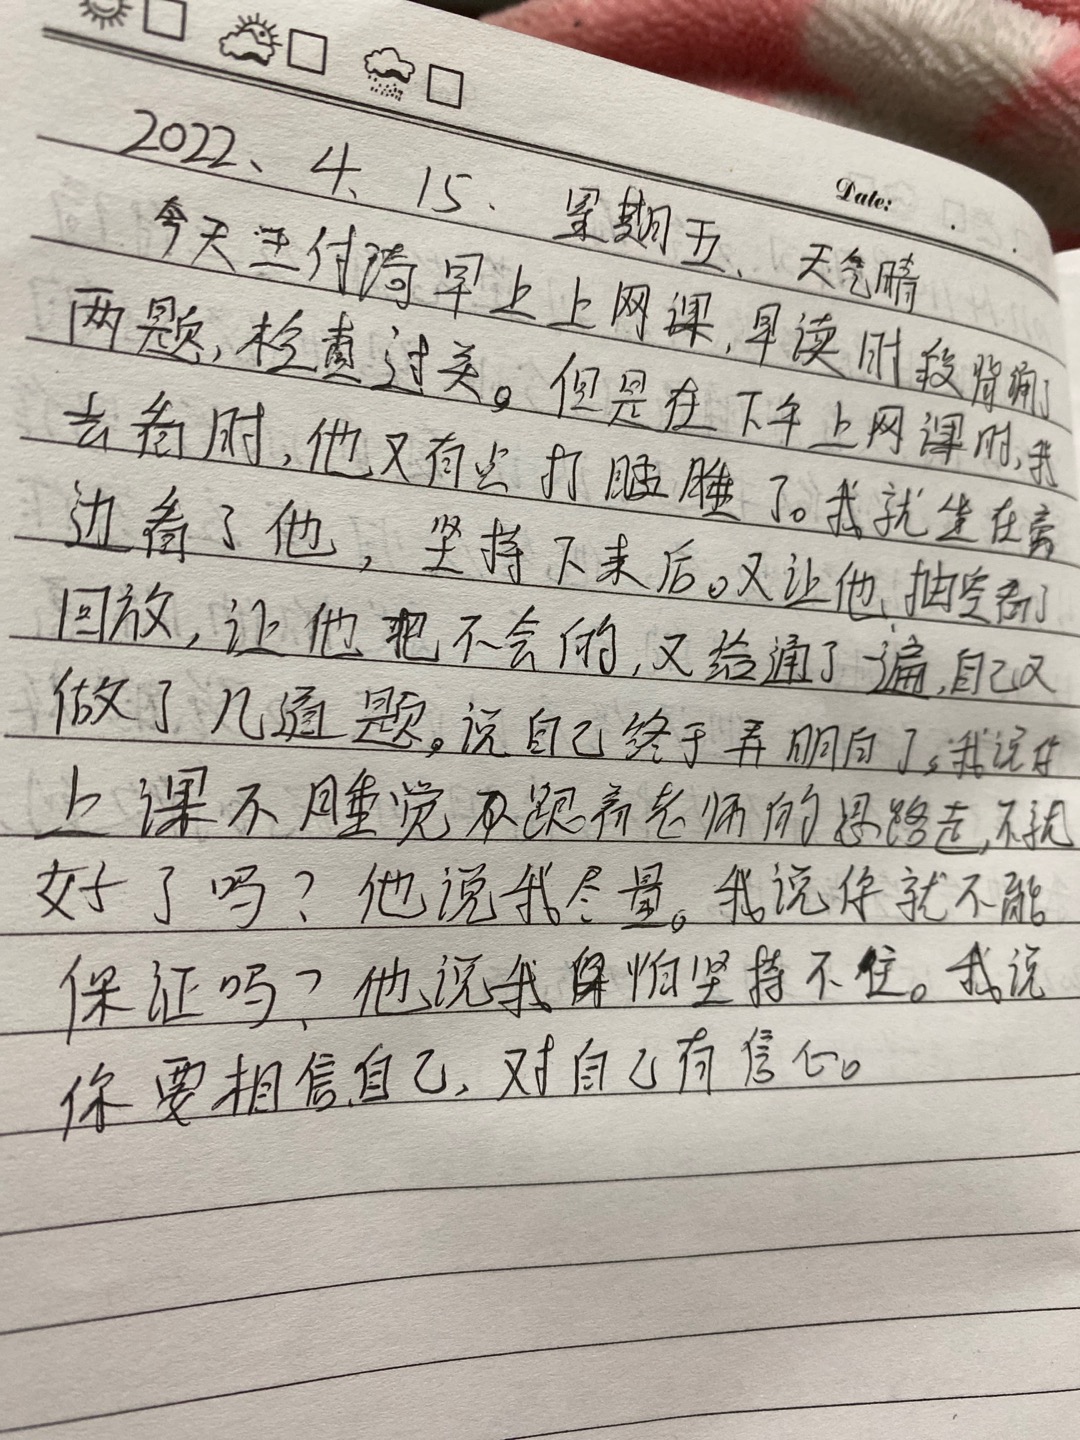 Date:
2022、4、15. 星期五、天气晴
今天王付琦早上上网课,早读时段背诵了
两题,检查过关。但是在下午上网课时,我
去看时,他又有点打瞌睡了。我就坐在旁
边看了他,坚持下来后。又让他抽空看了
回放,让他把不会的,又给通了一遍,自己又
做了几道题。说自己终于弄明白了。我说你
上课不睡觉 跟着老师的思路走,不就
好了吗?他说我尽量。我说你就不能
保证吗?他说我 怕坚持不住。我说
你要相信自己,对自己有信心。